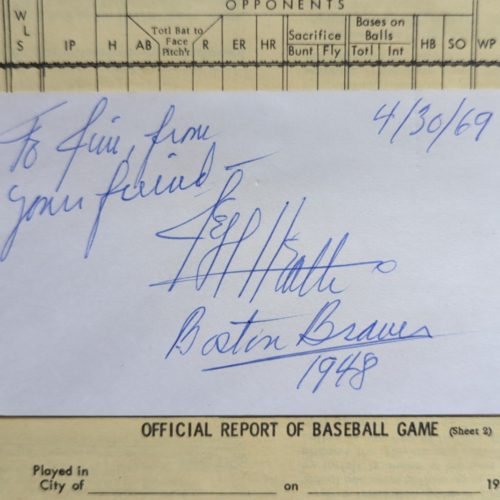 OPPONENTS
W L S IP H AB Totl Bat to Face Pitch'r R ER HR Sacrifice Bunt Fly Bases on Balls Totl Int HB SO WP
To Jim, from 4/30/69
your friend –
Jeff Heath
Boston Braves
1948
OFFICIAL REPORT OF BASEBALL GAME (Sheet 2)
Played in
City of on 19